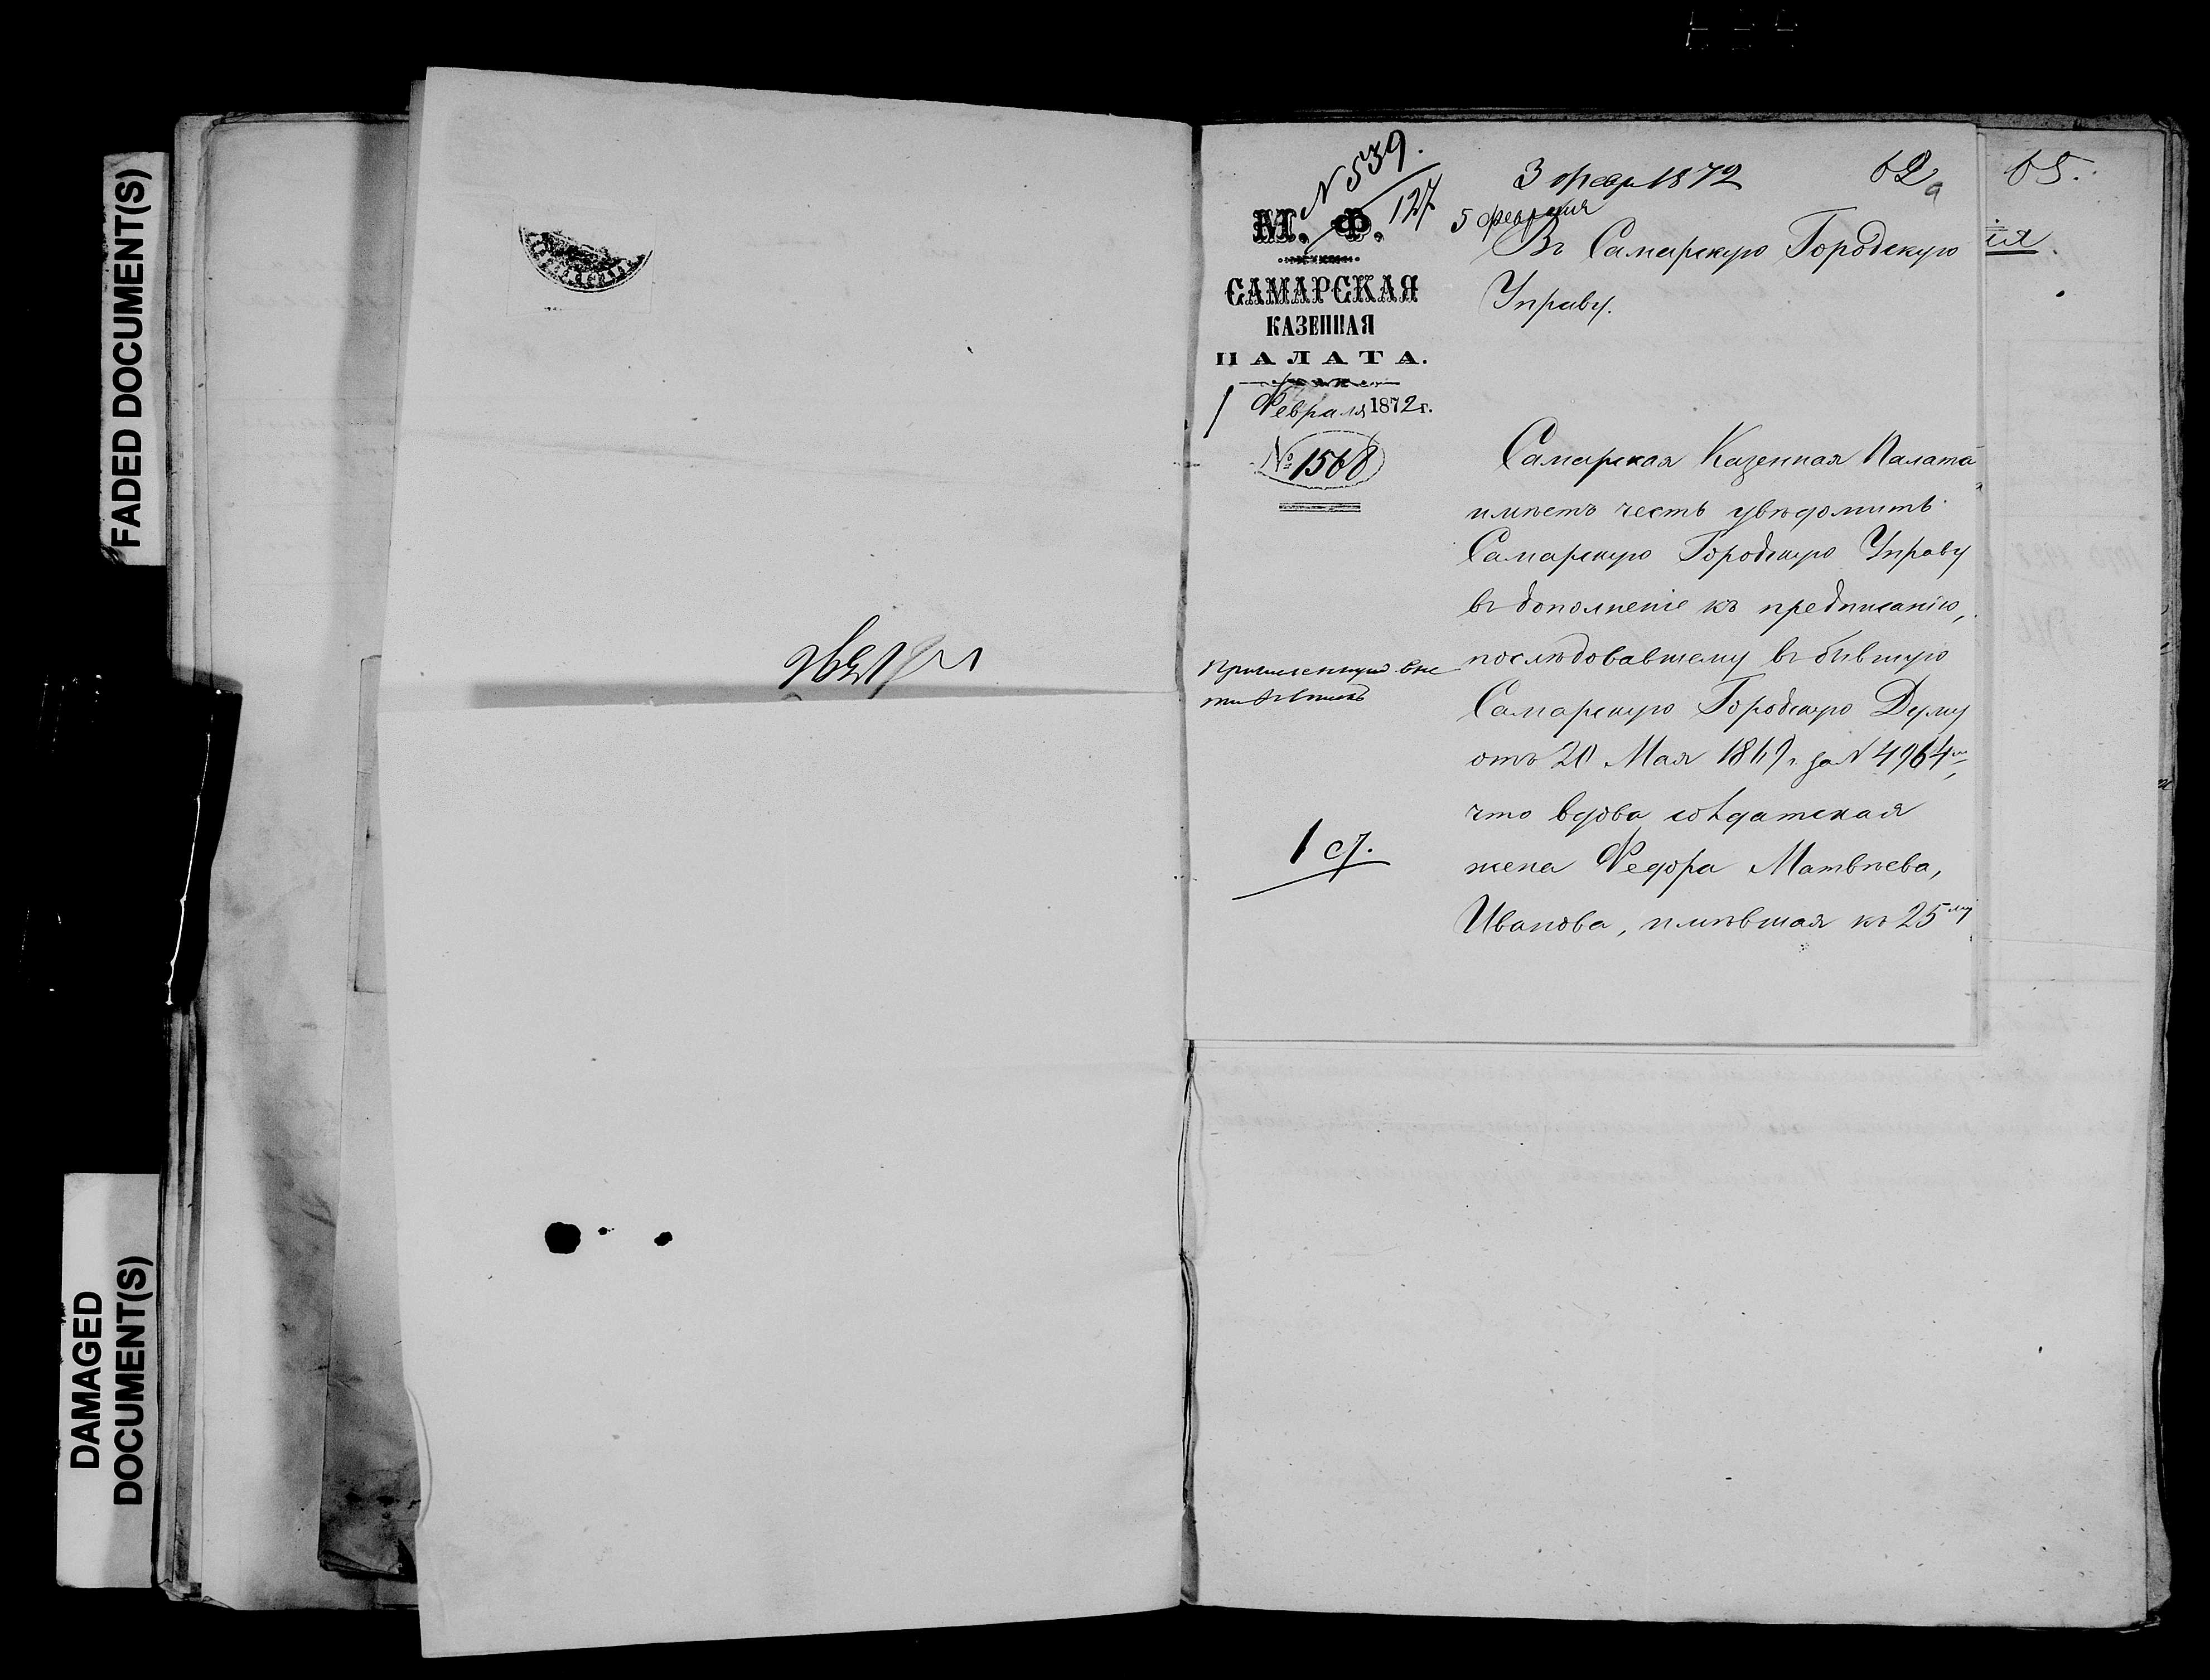 FADED DOCUMENT(S)
DAMAGED
DOCUMENT(S)
N 539.
127
3 февр 1872
62а
65.
5 февраля
М. Ф.
САМАРСКАЯ
КАЗЕННАЯ
ПАЛАТА.
1 Февраля 1872 г.
№ 1568
Въ Самарскую Городскую
Управу.
Самарская Казенная Палата
имѣетъ честь увѣдомить
Самарскую Городскую Управу
въ дополненіе къ предписанію,
послѣдовавшему въ бывшую
Самарскую Городскую Думу
отъ 20 Мая 1869 г. за N 4964мъ,
что вдова солдатская
жена Федора Матвѣева,
Иванова, имѣвшая къ 25му
1 ст.